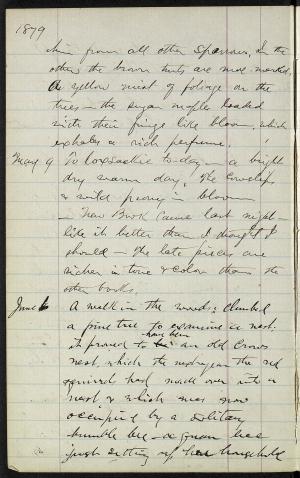 1879
him from all other sparrows. In the
other the brown tints are more marked.
A yellow mist of foliage on the
trees - the sugar maple loaded
with their fringe like bloom, which
exhales a rich perfume.
May 9 To to-day - a bright
dry warm day. The
& wild peony in bloom
- New Book came last night -
like it better than I thought I
should - The late pieces are
richer in tone & color than the
other books.
June 6 A walk in the woods; climbed
a pine tree to examine a nest.
it proved to have been an old Crows
nest, which the red
squirrel had made over into a
nest & which was now
occupied by a solitary
bumble bee - a queen bee
just setting up her household